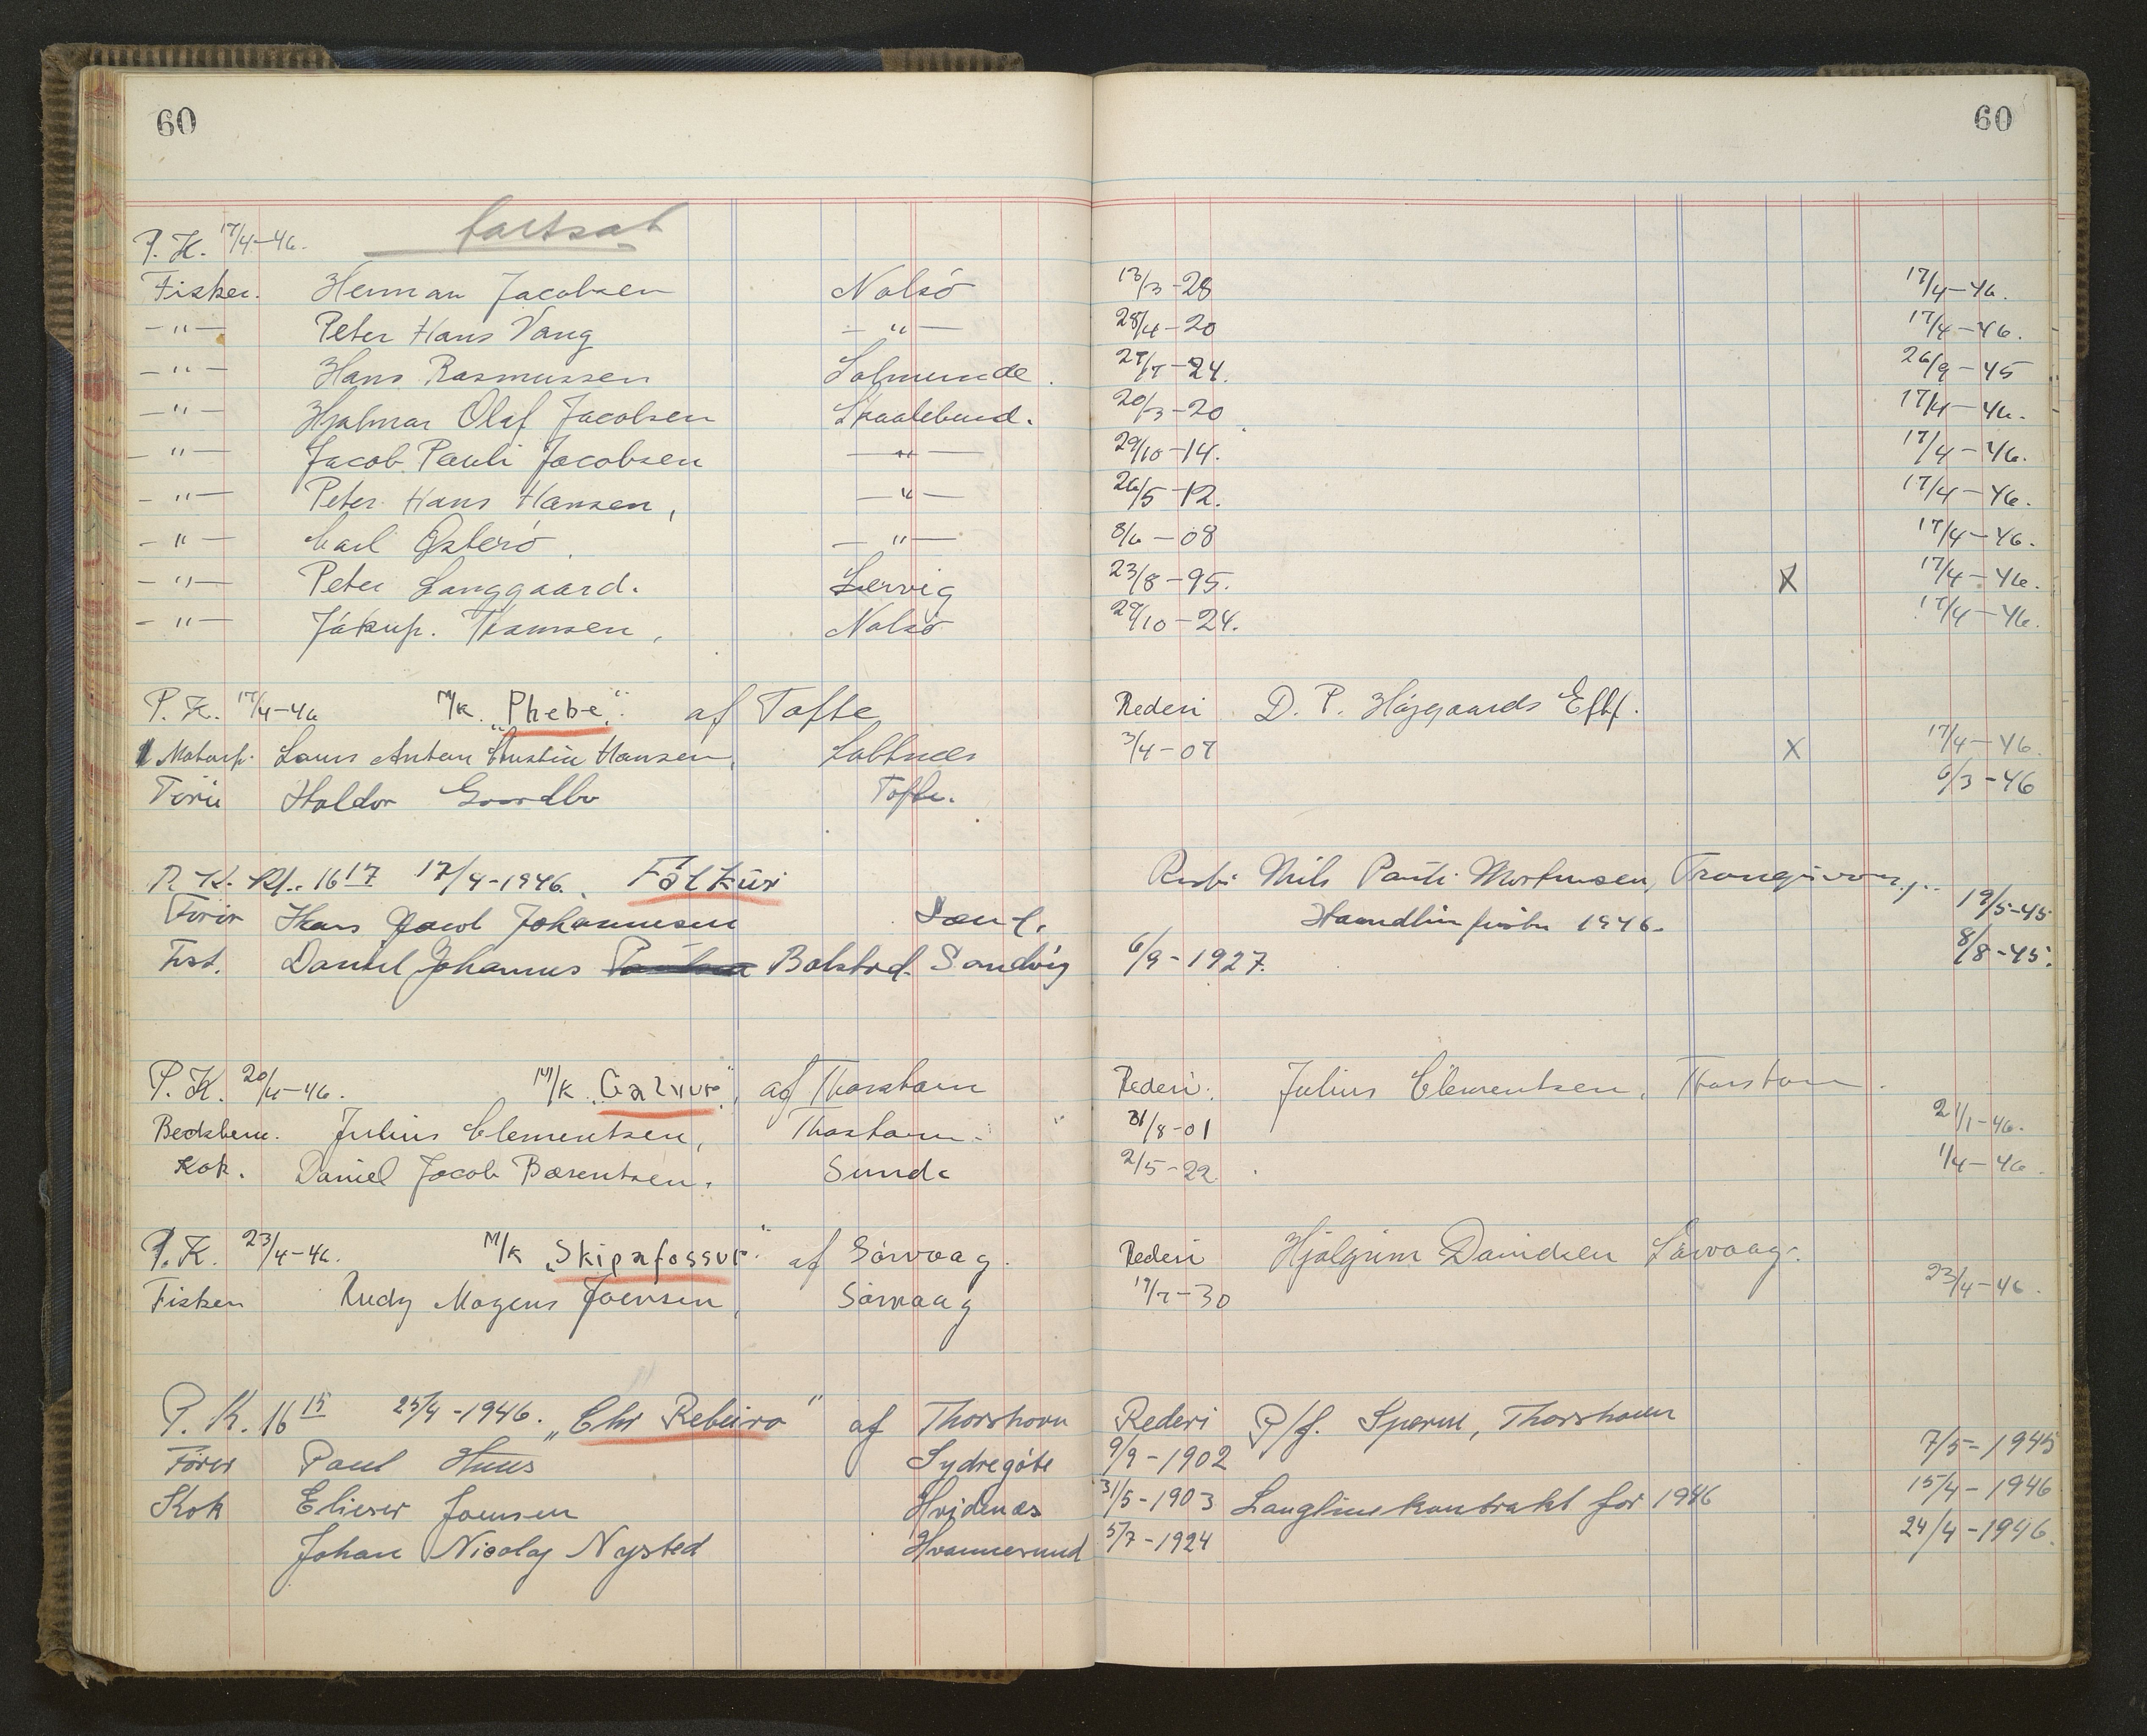 60
60
P. K. 17/4-46. fortsat
Fisker. Herman Jacobsen Nolsö 13/3-28 17/4-46.
-"- Peter Hans Vang -"- 28/4-20 17/4-46.
-"- Hans Rasmussen Solmunde. 27/7-24. 26/9-45
-"- Hjalmar Olaf Jacobsen Skaalebund. 20/3-20 17/4-46.
-"- Jacob Pauli Jacobsen -"- 29/10-14. 17/4-46.
-"- Peter Hans Hansen, -"- 26/5-12. 17/4-46.
-"- Carl Østerö. -"- 8/6-08 17/4-46.
-"- Peter Langgaard. Lervig 23/8-95. X 17/4-46.
-"- Jákup. Thomsen, Nolsö 29/10-24. 17/4-46.
P. K. 17/4-46 M/k. "Phebe". af Tofte Rederi D. P. Höjgaards Eftf.
Motorp. Louis Anton Hansen, Saltnes 3/4-07 X 17/4-46.
Förer Haldor Tofte. 6/3-46
P. K. Kl. 16 17 17/4-1946. Fálkur Nils Pauli Mortensen, Trangisvog
Förer Hans Jacob Johannesen Sand. 1946. 19/5-45
Fisk. Daniel Johannus Bolstad Sandvig 6/9-1927. 8/8-45.
P. K. 20/4-46. M/k "Galvur", af Thorshavn Rederi. Julius Clementsen, Thorshavn.
Bedstem. Julius Clementsen, Thorshavn. 31/8-01 21/1-46.
Kok. Daniel Jacob Bærentsen. Sunde 2/5-22. 1/4-46.
P. K. 23/4-46. M/k "Skipafossur" af Sörvaag. Rederi Hjalgrim Danielsen Sörvaag.
Fisker Rudy Mogens Joensen, Sörvaag 19/7-30 23/4-46.
P. K. 16 15 25/4-1946. "Chr Rebeiro" af Thorshavn Rederi P/f. Sperm, Thorshavn
Förer Paul Huus Sydregöte 9/9-1902 7/5-1945
Kok Elieser Joensen Hvidenæs 31/5-1903 Langlinekontrakt for 1946 15/4-1946
Johan Nicolaj Nysted Hvannesund 5/7-1924 24/4-1946.